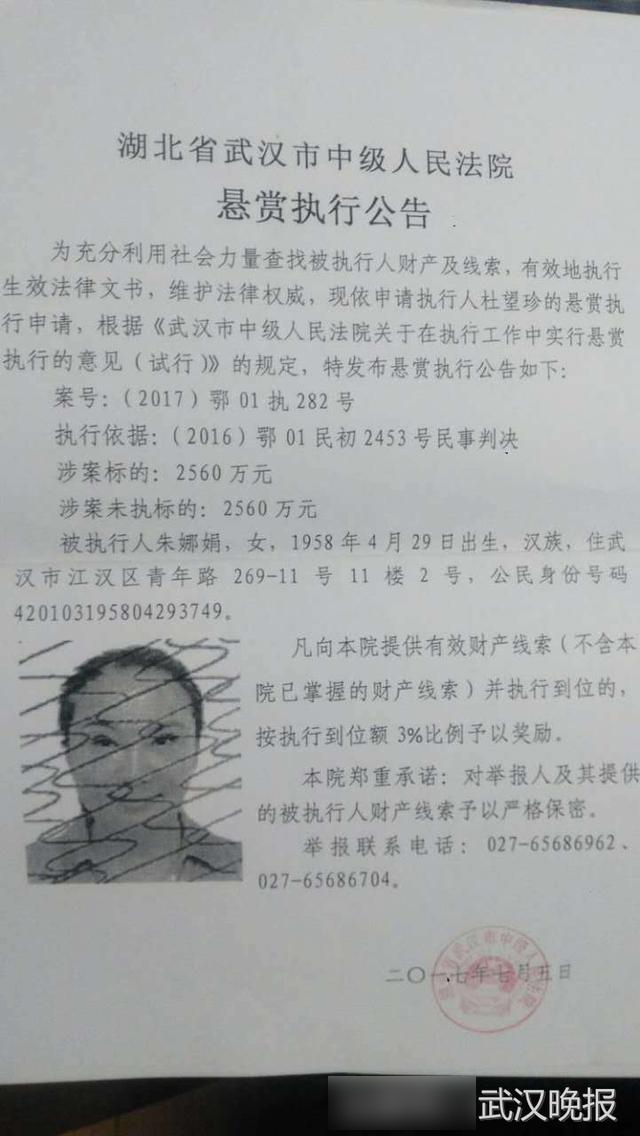 湖北省武汉市中级人民法院
悬赏执行公告
为充分利用社会力量查找被执行人财产及线索，有效地执行
生效法律文书，维护法律权威，现依申请执行人杜望珍的悬赏执
行申请，根据《武汉市中级人民法院关于在执行工作中实行悬赏
执行的意见（试行）》的规定，特发布悬赏执行公告如下：
案号：（2017）鄂 01 执 282 号
执行依据：（2016）鄂 01 民初 2453 号民事判决
涉案标的：2560 万元
涉案未执标的：2560 万元
被执行人朱娜娟，女，1958 年 4 月 29 日出生，汉族，住武
汉市江汉区青年路 269-11 号 11 楼 2 号，公民身份号码
420103195804293749。
凡向本院提供有效财产线索（不含本
院已掌握的财产线索）并执行到位的，
按执行到位额 3%比例予以奖励。
本院郑重承诺：对举报人及其提供
的被执行人财产线索予以严格保密。
举报联系电话：027-65686962、
027-65686704。
二〇一七年七月五日
湖北省武汉市中级人民法院
武汉晚报